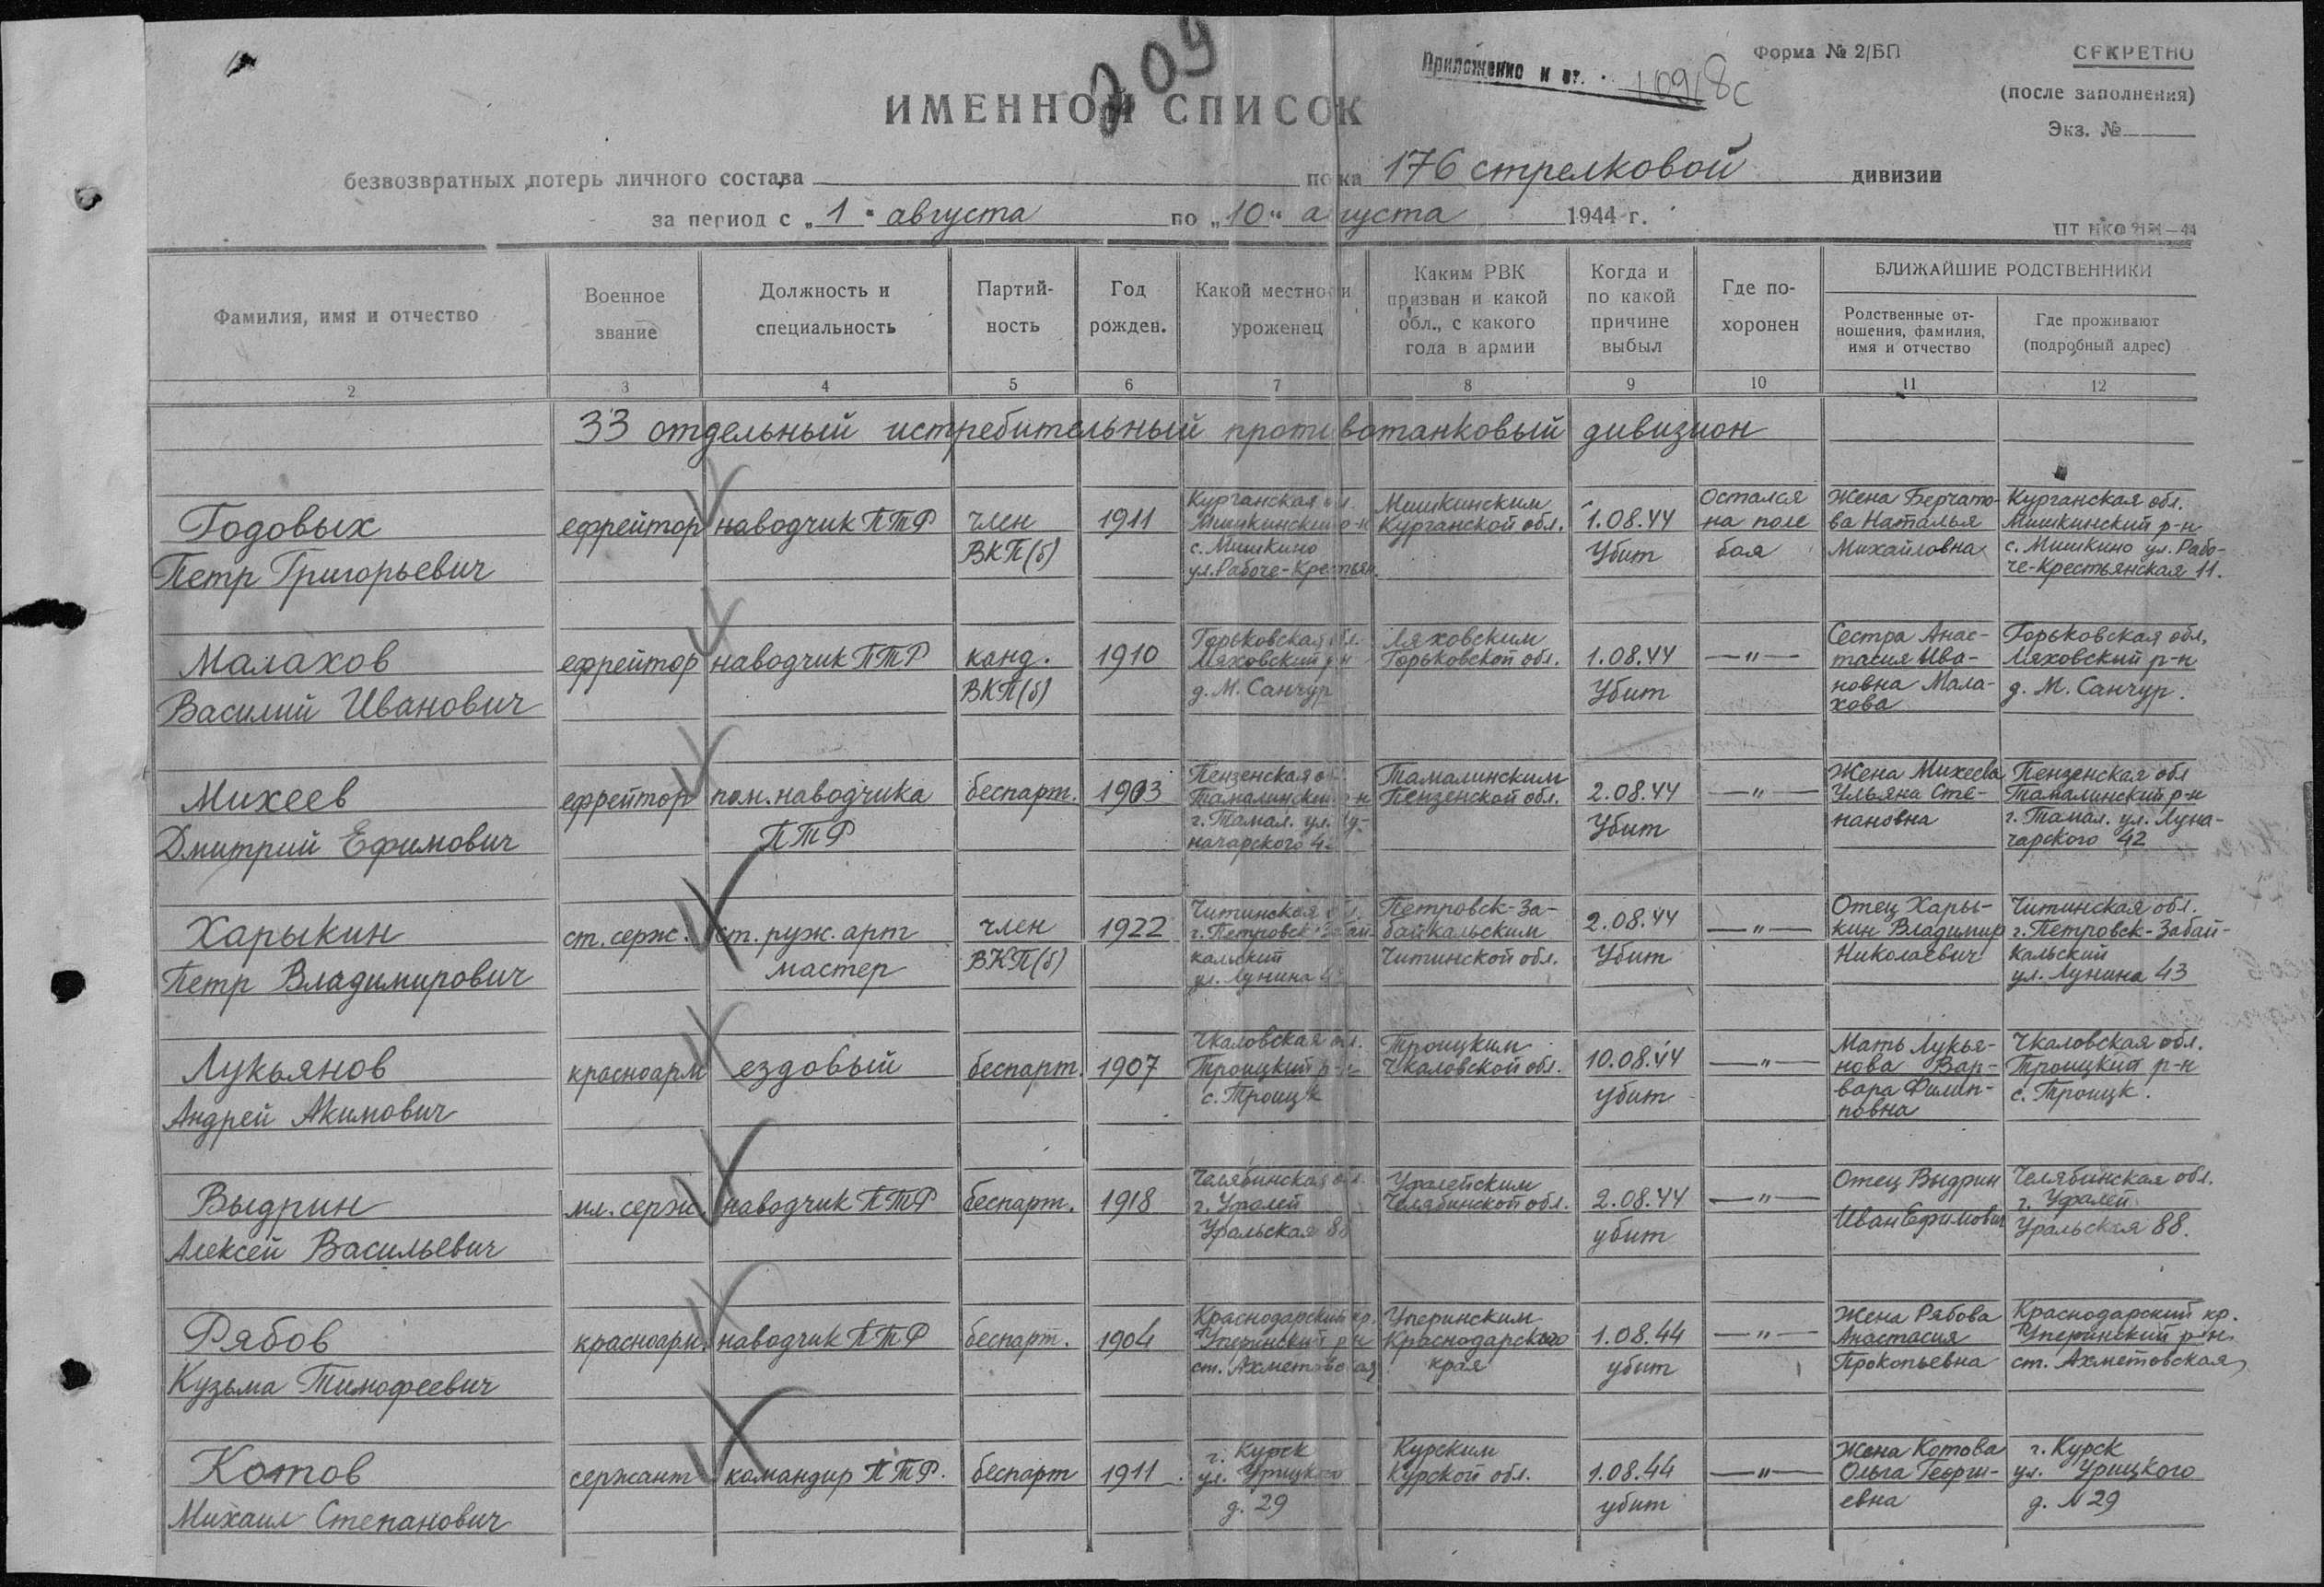 209
Приложение к вх. 10918с
Форма № 2/БП
СЕКРЕТНО
(после заполнения)
Экз. №
ИМЕННОЙ СПИСОК
безвозвратных потерь личного состава полка 176 стрелковой дивизии
за период с „1" августа по „10" августа 1944 г.
Фамилия, имя и отчество
Военное звание
Должность и специальность
Партий-
ность
Год рожден.
Какой местности уроженец
Каким РВК
призван и какой
обл., с какого
года в армии
Когда и
по какой
причине
выбыл
Где по-
хоронен
БЛИЖАЙШИЕ РОДСТВЕННИКИ
Родственные от-
ношения, фамилия,
имя и отчество
Где проживают
(подробный адрес)
2 3 4 5 6 7 8 9 10 11 12
33 отдельный истребительный противотанковый дивизион
Годовых
Петр Григорьевич
ефрейтор
наводчик ПТР
член
ВКП(б)
1911
Курганская обл.
Мишкинский р-н
с. Мишкино
ул. Рабоче-Крестьян.
Мишкинским
Курганской обл.
1.08.44
Убит
Остался
на поле
боя
Жена Берчато-
ва Наталья
Михайловна
Курганская обл.
Мишкинский р-н
с. Мишкино ул. Рабо-
че-Крестьянская 11.
Малахов
Василий Иванович
ефрейтор
наводчик ПТР
канд.
ВКП(б)
1910
Горьковская обл.
Ляховский р-н
д. М. Санчур
Ляховским
Горьковской обл.
1.08.44
Убит
—"—
Сестра Анас-
тасия Ива-
новна Мала-
хова
Горьковская обл.
Ляховский р-н
д. М. Санчур.
Михеев
Дмитрий Ефимович
ефрейтор
пом. наводчика
ПТР
беспарт.
1903
Пензенская об.
Тамалинский р-н
г. Тамал. ул. Лу-
начарского 42
Тамалинским
Пензенской обл.
2.08.44
Убит
—"—
Жена Михеева
Ульяна Сте-
пановна
Пензенская обл
Тамалинский р-н
г. Тамал. ул. Луна-
чарского 42
Харыкин
Петр Владимирович
ст. серж.
ст. руж. арт
мастер
член
ВКП(б)
1922
Читинская обл.
г. Петровск-Забай
кальский
ул. Лунина 43
Петровск-За-
байкальским
Читинской обл.
2.08.44
Убит
—"—
Отец Хары-
кин Владимир
Николаевич
Читинская обл.
г. Петровск-Забай-
кальский
ул. Лунина 43
Лукьянов
Андрей Акимович
красноарм
ездовый
беспарт.
1907
Чкаловская обл.
Троицкий р-н
с. Троицк
Троицким
Чкаловской обл.
10.08.44
убит
—"—
Мать Лукья-
нова Вар-
вара Филип-
повна
Чкаловская обл.
Троицкий р-н
с. Троицк.
Выдрин
Алексей Васильевич
мл. серж.
наводчик ПТР
беспарт.
1918
Челябинская обл.
г. Уфалей
Уральская 88
Уфалейским
Челябинской обл.
2.08.44
убит
—"—
Отец Выдрин
Иван Ефимович
Челябинская обл.
г. Уфалей
Уральская 88.
Рябов
Кузьма Тимофеевич
красноарм.
наводчик ПТР
беспарт.
1904
Краснодарский кр.
Уперинский р-н
ст. Ахметовская
Уперинским
Краснодарского
края
1.08.44
убит
—"—
Жена Рябова
Анастасия
Прокопьевна
Краснодарский кр.
Уперинский р-н.
ст. Ахметовская
Котов
Михаил Степанович
сержант
командир ПТР.
беспарт
1911
г. Курск
ул. Урицкого
д. 29
Курским
Курской обл.
1.08.44
убит
—"—
Жена Котова
Ольга Георги-
евна
г. Курск
ул. Урицкого
д. N 29